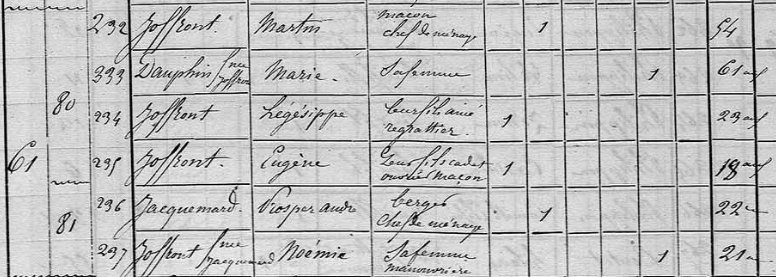 232 Joffront. Martin maçon chef de ménage 1 54
333 Dauphin fne Joffront Marie. Sa femme 1 61 ans
80
234 Joffront Hégésippe leur fils ainé regrattier 1 23 ans
61 235 Joffront. Eugène leur fils cadet ouvrier maçon 1 18 ans
81 236 Jacquemard. Prosper andré berger chef de ménage 1 22
237 Joffront fne Jacquemard Noémie Sa femme manouvrière 1 21